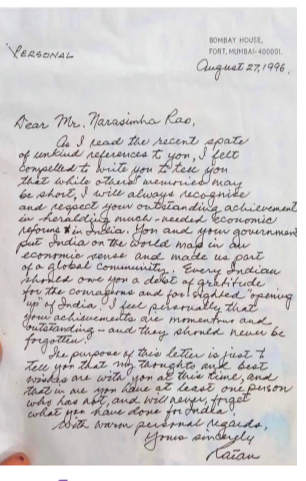 BOMBAY HOUSE,
FORT, MUMBAI-400001.
PERSONAL
August 27, 1996.
Dear Mr. Narasimha Rao,
As I read the recent spate
of unkind references to you, I felt
compelled to write you to tell you
that while others' memories may
be short, I will always recognise
and respect your outstanding achievement
in heralding much-needed economic
reforms in India. You and your government
put India on the world map in an
economic sense and made us part
of a global community. Every Indian
should owe you a debt of gratitude
for the courageous and far sighted "opening
up" of India. I feel personally that
your achievements are momentous and
outstanding - and they should never be
forgotten.
The purpose of this letter is just to
tell you that my thoughts and best
wishes are with you at this time, and
that in me you have at least one person
who has not, and will never, forget
what you have done for India.
With warm personal regards,
Yours sincerely
Ratan